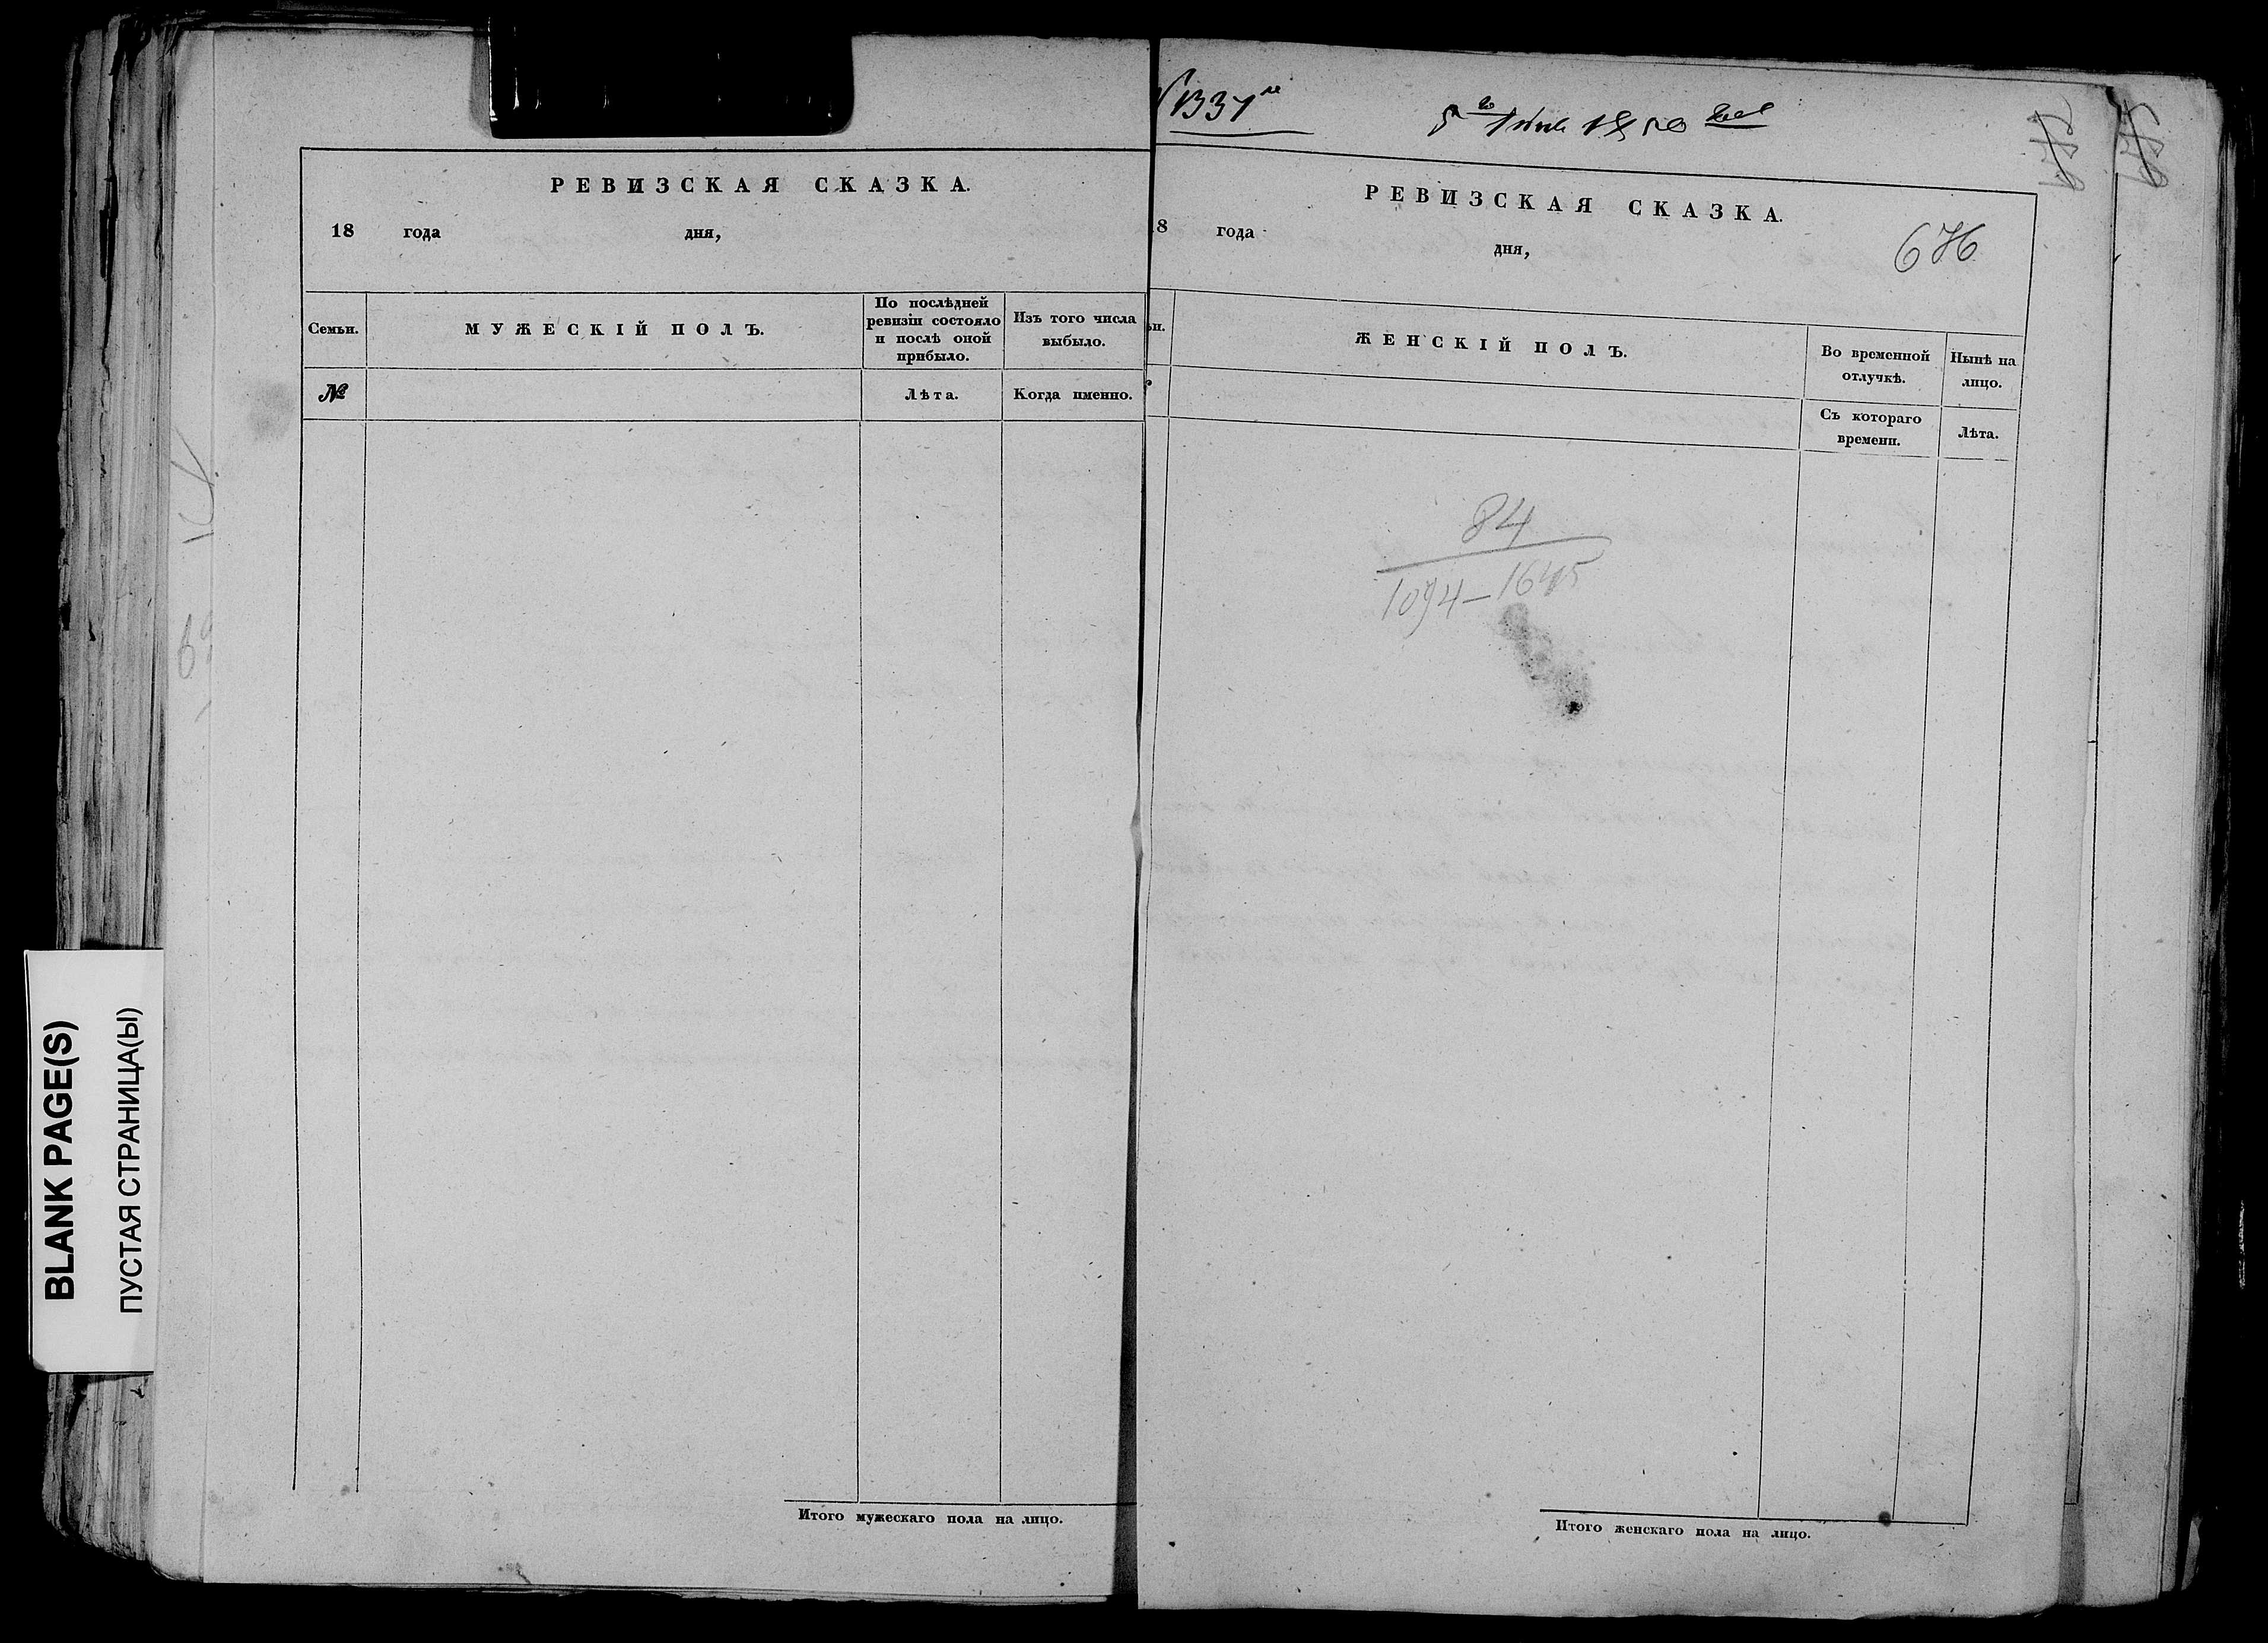 РЕВИЗСКАЯ СКАЗКА.
18 года дня,
Семьи.
МУЖЕСКІЙ ПОЛЪ.
По послѣдней
ревизіи состояло
и послѣ оной
прибыло.
Изъ того числа
выбыло.
№
Лѣта.
Когда именно.
Итого мужескаго пола на лицо.
1850
РЕВИЗСКАЯ СКАЗКА.
8 года дня,
676
ьи.
ЖЕНСКІЙ ПОЛЪ.
Во временной
отлучкѣ.
Нынѣ на
лицо.
Съ котораго
времени.
Лѣта.
84
1094-1645
Итого женскаго пола на лицо.
BLANK PAGE(S)
ПУСТАЯ СТРАНИЦА(Ы)